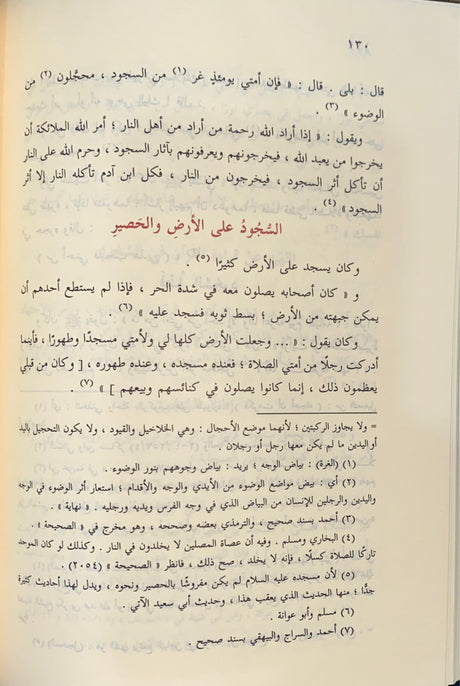 ١٣٠
قال : بلى . قال : « فإن أمتي يومئذٍ غر (١) من السجود ، محجلون (٢) من
الوضوء » (٣) .
ويقول : « إذا أراد الله رحمة من أراد من أهل النار ؛ أمر الله الملائكة أن
يخرجوا من يعبد الله ، فيخرجونهم ويعرفونهم بآثار السجود ، وحرم الله على النار
أن تأكل أثر السجود ، فيخرجون من النار ، فكل ابن آدم تأكله النار إلا أثر
السجود » (٤) .
السُّجُودُ على الأرضِ والحَصيرِ
وكان يسجد على الأرض كثيرًا (٥) .
و « كان أصحابه يصلون معه في شدة الحر ، فإذا لم يستطع أحدهم أن
يمكن جبهته من الأرض ؛ بسط ثوبه فسجد عليه » (٦) .
وكان يقول : « ... وجعلت الأرض كلها لي ولأمتي مسجدًا وطهورًا ، فأينما
أدركت رجلًا من أمتي الصلاة ؛ فعنده مسجده ، وعنده طهوره ، [ وكان من قبلي
يعظمون ذلك ، إنما كانوا يصلون في كنائسهم وبيعهم ] » (٧) .
= ولا يجاوز الركبتين ؛ لأنهما موضع الأحجال : وهي الخلاخيل والقيود ، ولا يكون التحجيل باليد
أو اليدين ما لم يكن معها رجل أو رجلان .
(١) (الغرة) : بياض الوجه ؛ يريد : بياض وجوههم بنور الوضوء .
(٢) أي : بيض مواضع الوضوء من الأيدي والوجه والأقدام ؛ استعار أثر الوضوء في الوجه
واليدين والرجلين للإنسان من البياض الذي في وجه الفرس ويديه ورجليه . « نهاية » .
(٣) أحمد بسند صحيح ، والترمذي بعضه وصححه ، وهو مخرج في « الصحيحة » .
(٤) البخاري ومسلم . وفيه أن عصاة المصلين لا يخلدون في النار . وكذلك لو كان الموحد
تاركًا للصلاة كسلًا ، فإنه لا يخلد ، صح ذلك ، فانظر « الصحيحة » (٢٠٥٤) .
(٥) لأن مسجده عليه السلام لم يكن مفروشًا بالحصير ونحوه ، ويدل لهذا أحاديث كثيرة
جدًّا ؛ منها الحديث الذي يعقب هذا ، وحديث أبي سعيد الآتي .
(٦) مسلم وأبو عوانة .
(٧) أحمد والسراج والبيهقي بسند صحيح .